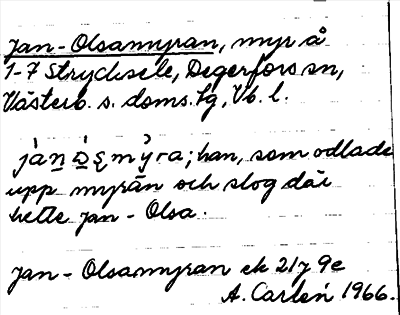 Jan-Olsamyran, myr å
1-7 Strycksele, Degerfors sn,
Västerb. s. doms. tg, Vb. l.
han, som odlade
upp myran och slog där
hette Jan-Olsa.
Jan-Olsamyran ek 21J 9e
A. Carlén 1966.